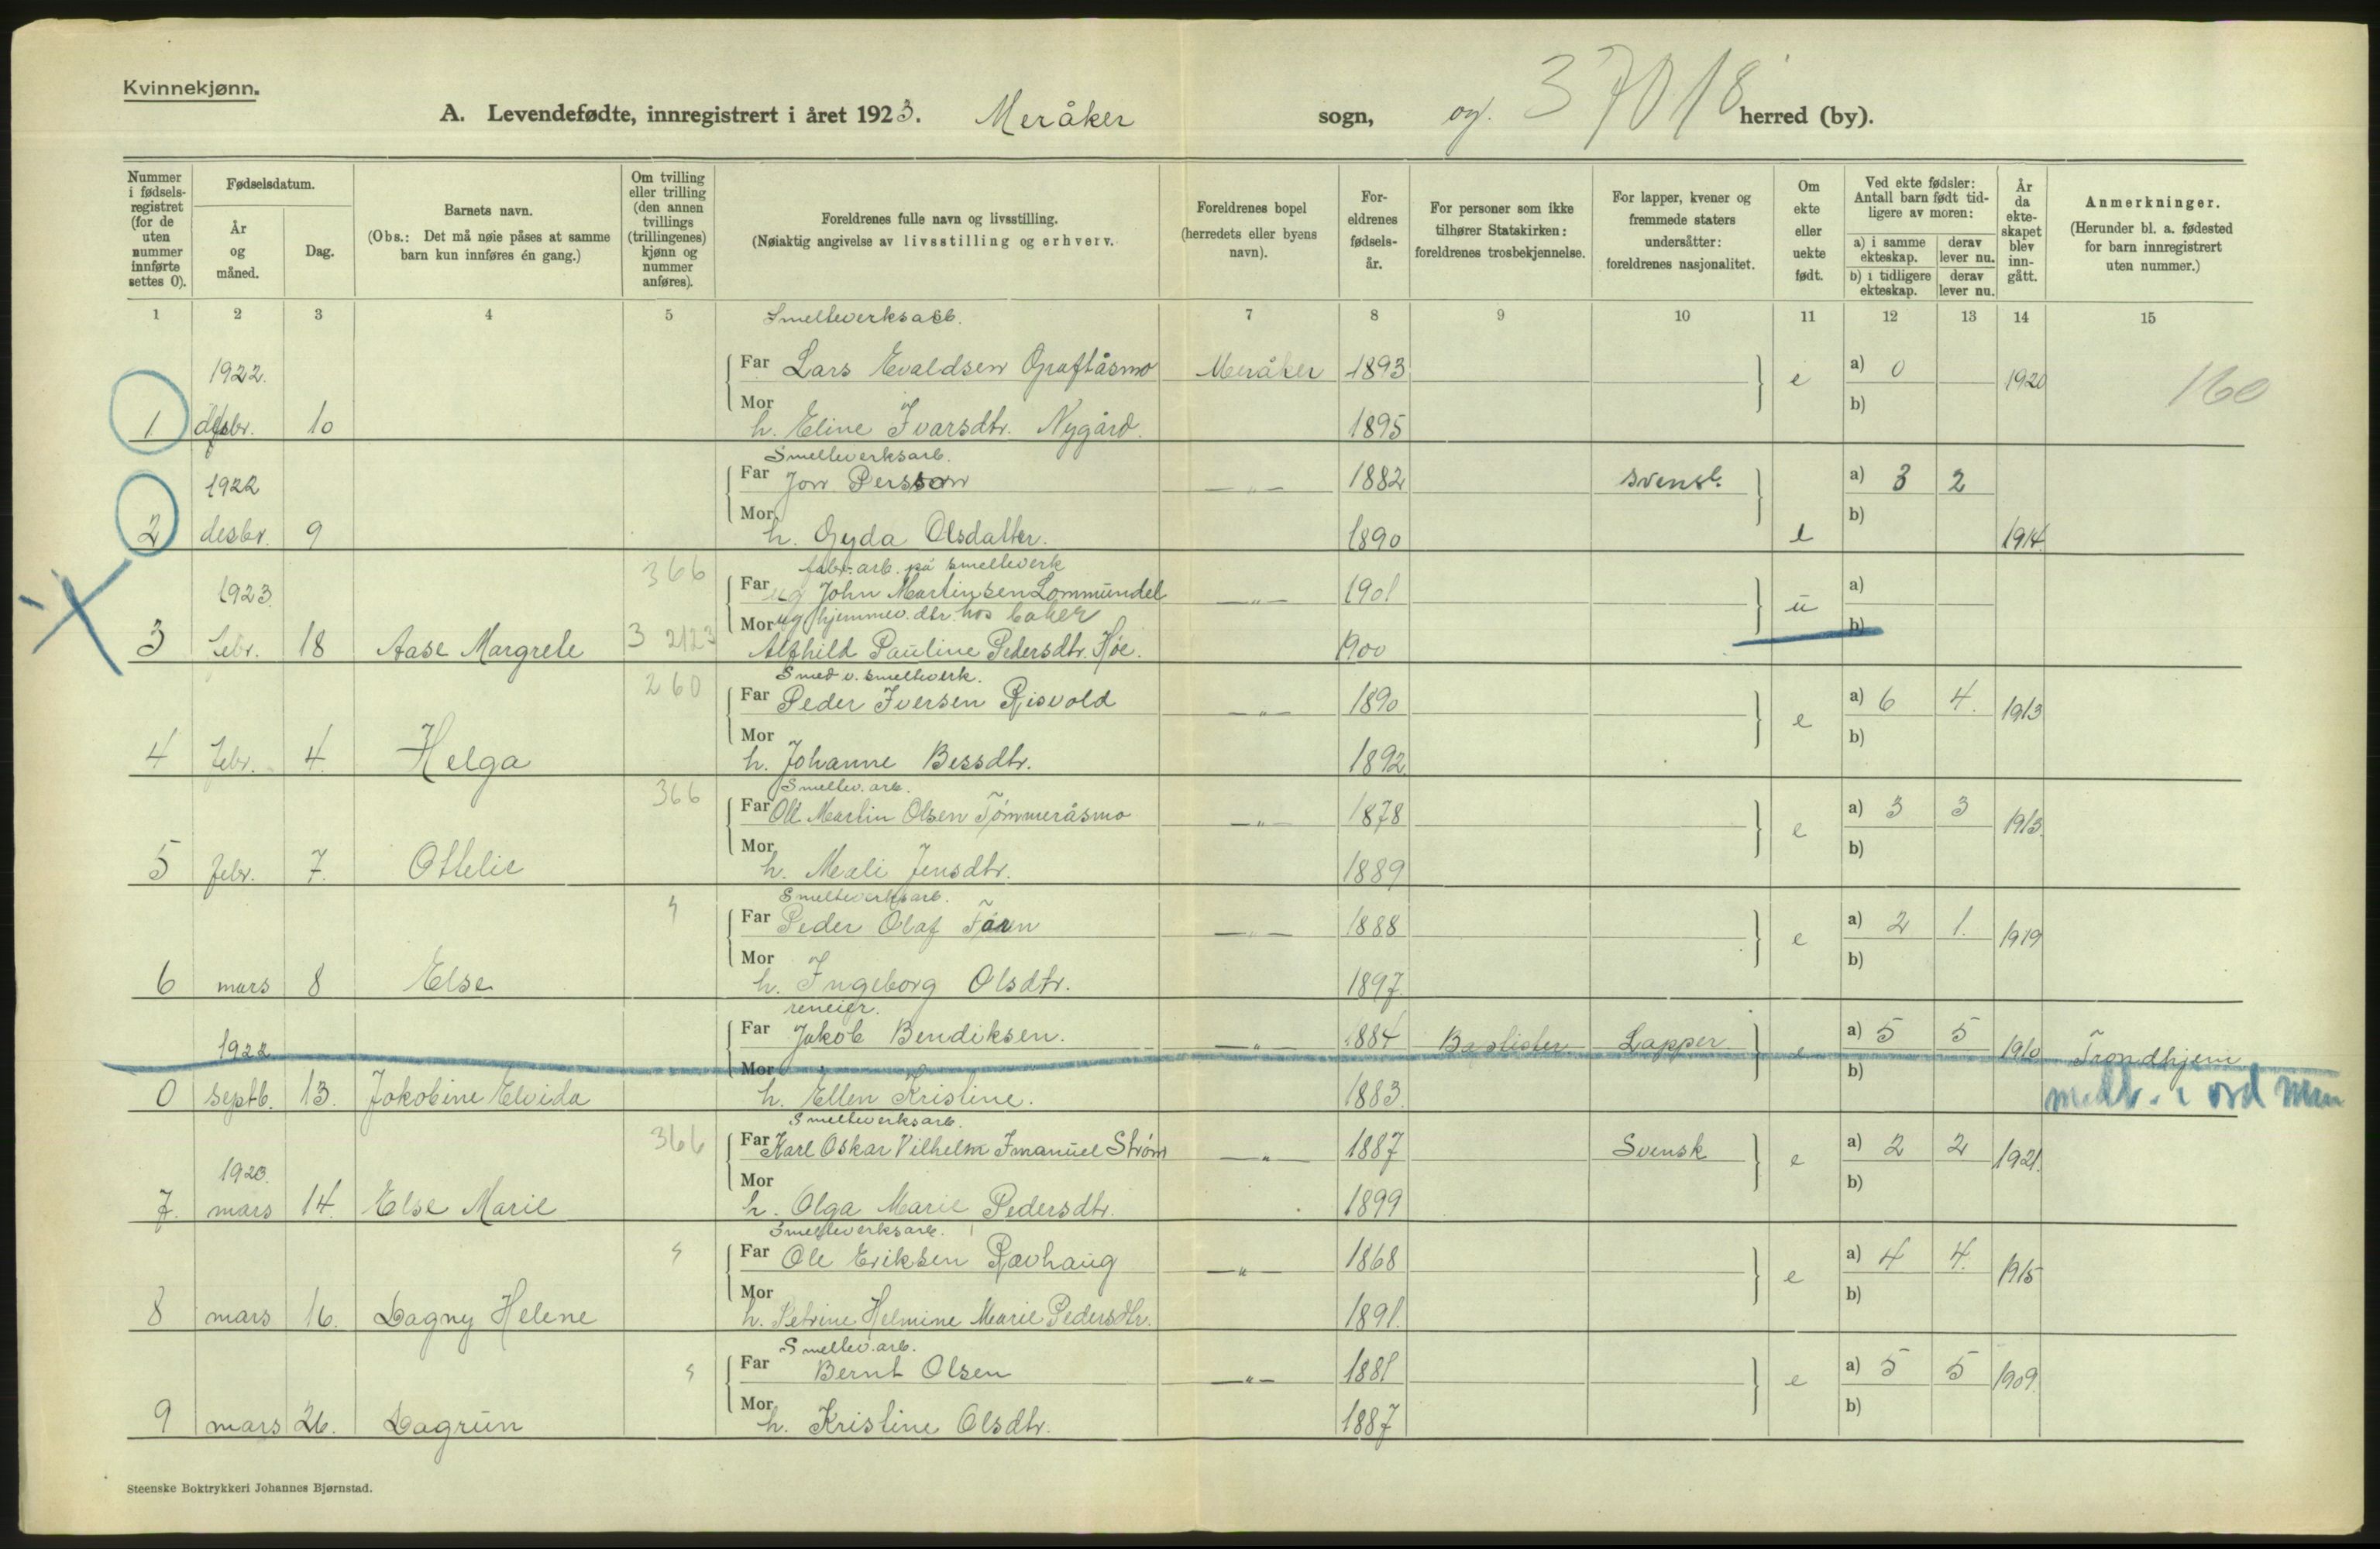 Kvinnekjønn.
A. Levendefødte, innregistrert i året 1923. Meråker sogn, og. 37018 herred (by).
Nummer i fødselsregistret (for de uten nummer innførte settes 0).
Fødselsdatum.
År og måned.
Dag.
Barnets navn.
(Obs.: Det må nøie påses at samme barn kun innføres én gang.)
Om tvilling eller trilling (den annen tvillings (trillingenes) kjønn og nummer anføres).
Foreldrenes fulle navn og livsstilling.
(Nøiaktig angivelse av livsstilling og erhverv.
Foreldrenes bopel (herredets eller byens navn).
Foreldrenes fødselsår.
For personer som ikke tilhører Statskirken: foreldrenes trosbekjennelse.
For lapper, kvener og fremmede staters undersåtter: foreldrenes nasjonalitet.
Om ekte eller uekte født.
Ved ekte fødsler: Antall barn født tidligere av moren:
a) i samme ekteskap. derav lever nu.
b) i tidligere ekteskap. derav lever nu.
År da ekteskapet blev inngått.
Anmerkninger.
(Herunder bl. a. fødested for barn innregistrert uten nummer.)
1 2 3 4 5 7 8 9 10 11 12 13 14 15
Smelteverksarb.
1922. Far Lars Evaldsen Meråker 1893 e a) 0 1920 160
1 10 Mor h. Eline Ivarsdtr. Nygård. 1895 b)
Smelteverksarb.
1922 Far Jon Persson —"— 1882 svensk. a) 3 2
2 desbr. 9 Mor h. Gyda Olsdatter. 1890 e b) 1914.
366 fabr. arb. på smelteverk
1923. Far ug John Martinsen Lommundal —"— 1901 u a)
Mor ug hjemmev. dtr. hos baker b)
3 febr. 18 Aase Margrete 3 2123 Alfhild Pauline Pedersdtr. Høe. 1900
260 Smed v. smelteverk.
Far Peder Iversen Risvold —"— 1890 e a) 6 4. 1913
4 febr. 4. Helga Mor h. Johanne Bessdtr. 1892 b)
366 Smeltev. arb.
Far Ole Martin Olsen Tømmeråsmo —"— 1878 e a) 3 3 1913.
5 febr. 7. Ottelie Mor h. Mali Jensdtr. 1889 b)
Smelteverksarb.
Far Peder Olaf —"— 1888 e a) 2 1. 1919
6 mars 8 Else Mor h. Ingeborg Olsdtr. 1897. b)
reneier.
1922 Far Jakob Bendiksen. —"— 1884 Baptister Lapper e a) 5 5 1910 Trondhjem
0 septb. 13. Jakobine Elvida Mor h. Ellen Kristine. 1883. b)
366 Smelteverksarb.
1923. Far Karl Oskar Vilhelm Imanuel Strøm —"— 1887 Svensk e a) 2 2 1921.
7. mars 14. Else Marie Mor h. Olga Marie Pedersdtr. 1899 b)
Smelteverksarb.
Far Ole Eriksen Rovhaug —"— 1868 e a) 4 4. 1915
8 mars 16. Dagny Helene Mor h. Petrine Helmine Marie Pedersdtr. 1891. b)
Smeltev. arb.
Far Bernt Olsen —"— 1881 e a) 5 5 1909.
9 mars 26. Dagrun Mor h. Kristine Olsdtr. 1887 b)
Steenske Boktrykkeri Johannes Bjørnstad.